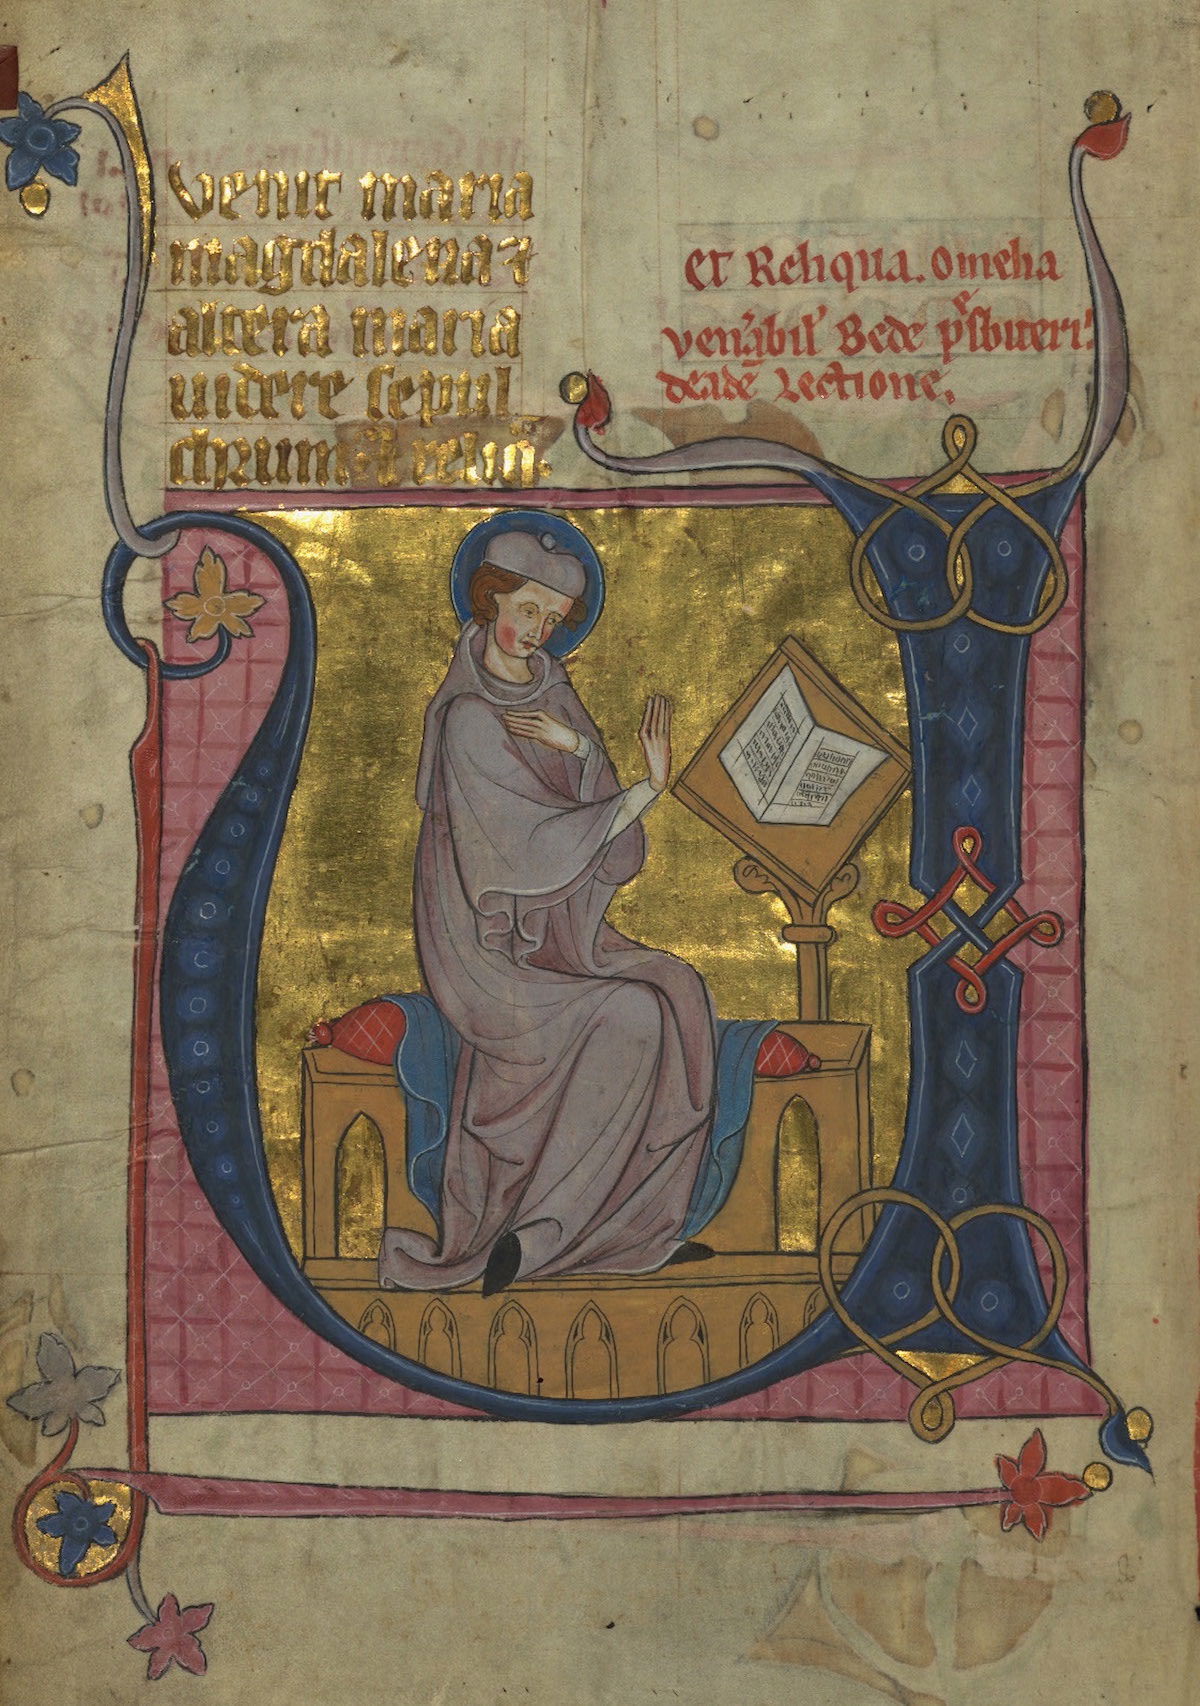 venit maria
magdalena ⁊
altera maria
uidere sepul
chrum ⁊ reliq̄.
et Reliqua. Omelia
ven̄abil' Bede p̄sbiteri:
de adē Lectione.